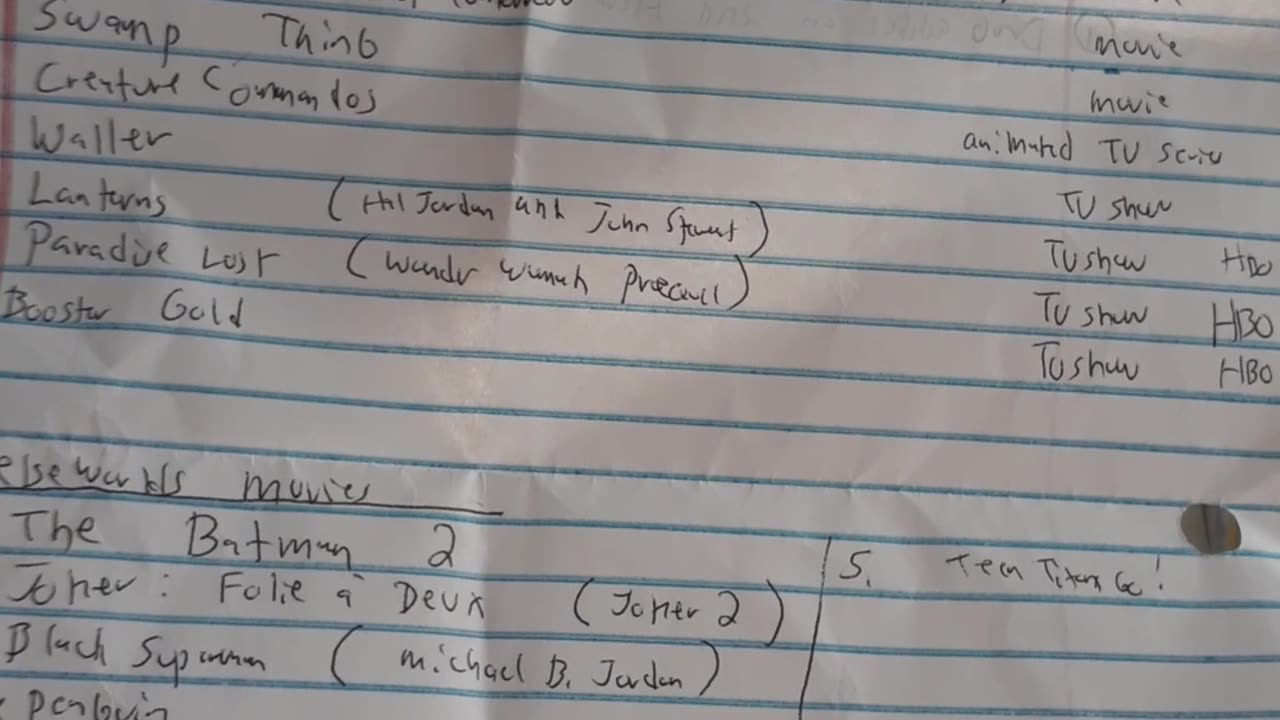 movie
Swamp Thing movie
Creature Commandos animated TV Series
Waller TV show
Lanterns (Hal Jordan and John Stewart) TV show HBO
Paradise Lost (Wonder Woman Preequel) TV show HBO
Booster Gold TV show HBO
elseworlds movies
The Batman 2
Joker: Folie à Deux (Joker 2)
5. Teen Titans Go!
Black Superman (Michael B. Jordan)
Penguin